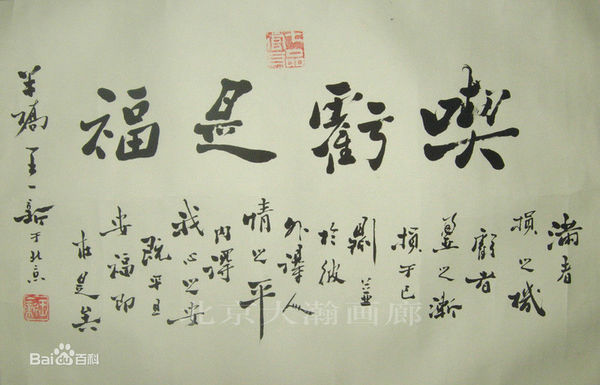 喫虧是福
滿者
損之機
虧者
盈之漸
損于己
則益
於彼
外得人
情之平
内得
我心之安
既平且
安福即
在是矣
王一新于北京
北京大瀚画廊
Bai百科